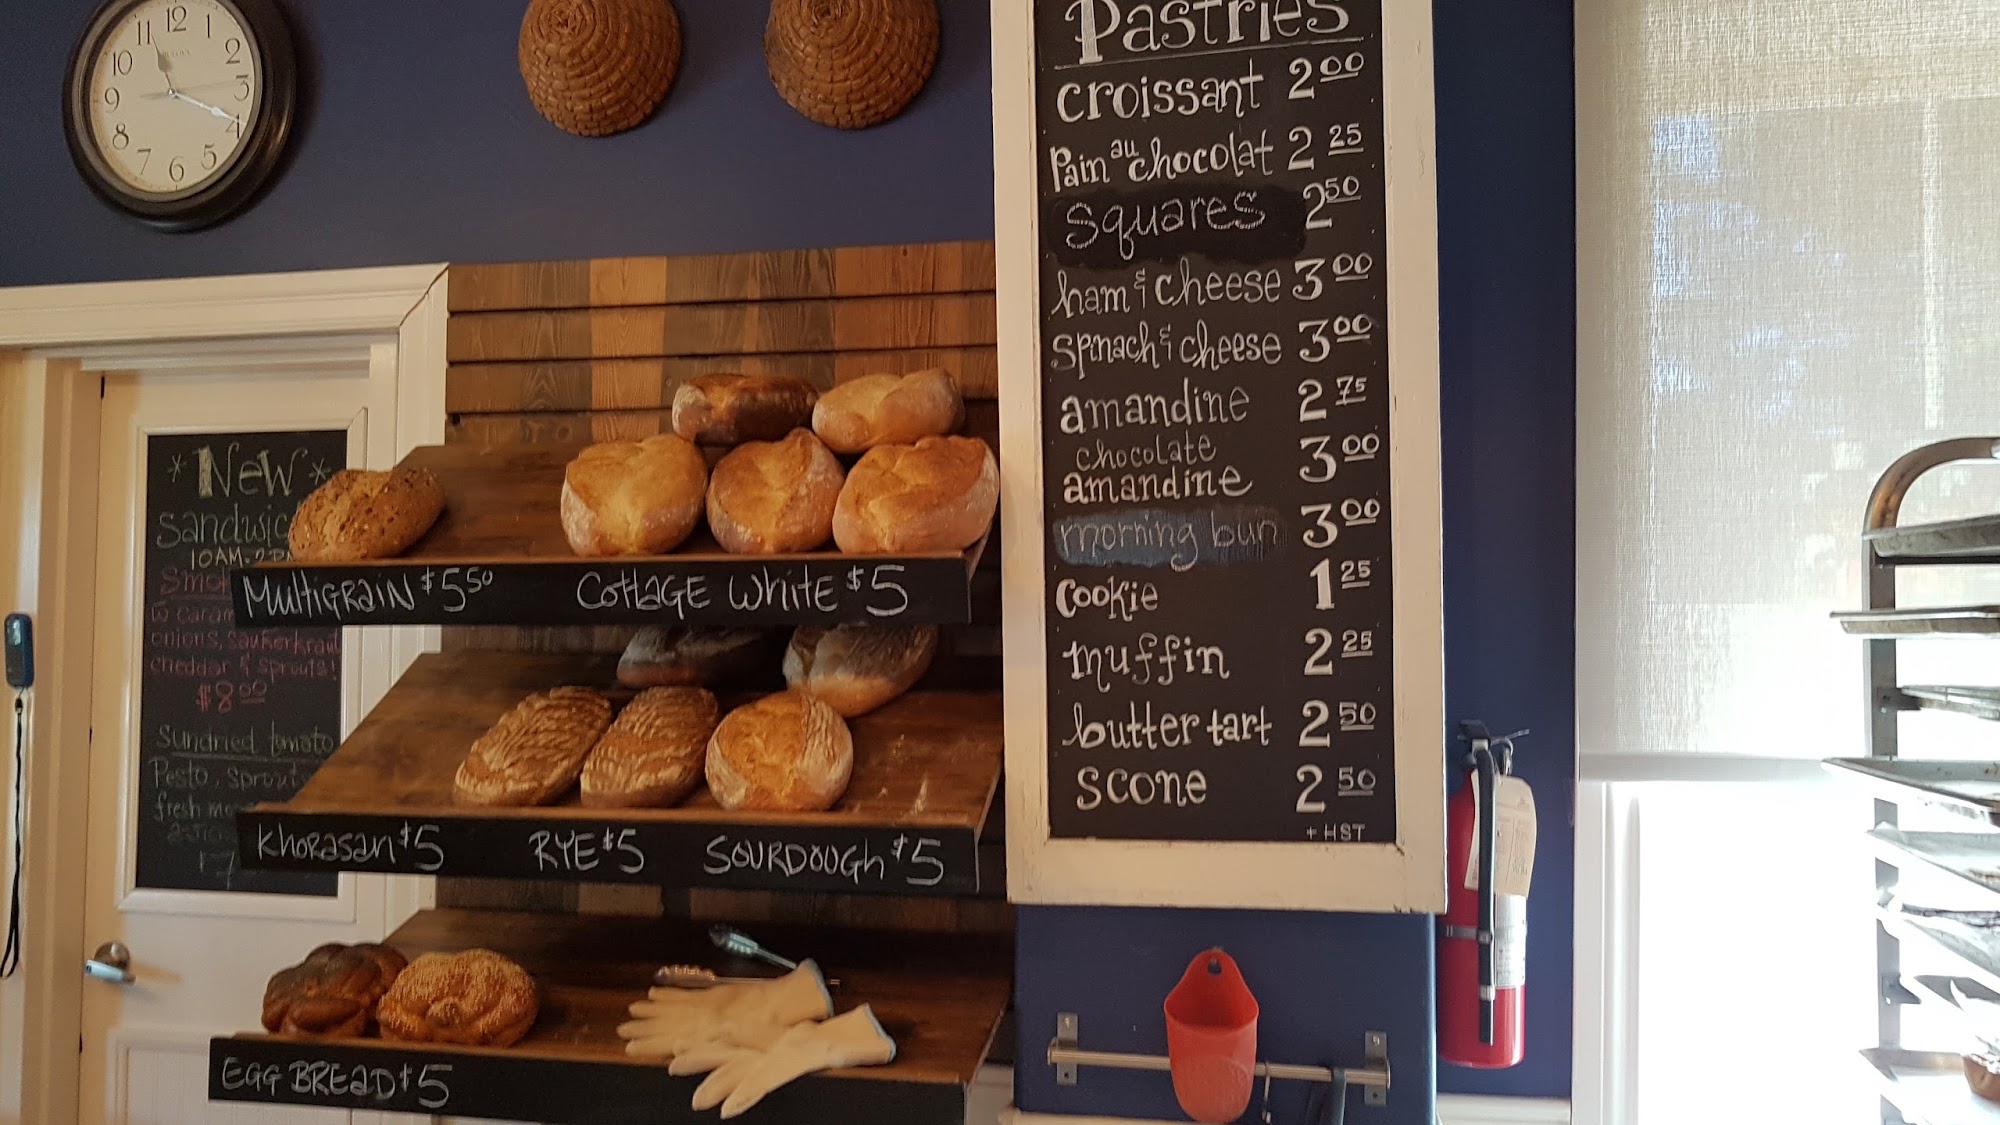 12
11
2
10
BULOVA
3
9
4
8
5
7
6
Pastries
croissant 2 00
Pain au chocolat 2 25
squares 2 50
ham & cheese 3 00
spinach & cheese 3 00
amandine 2 75
chocolate
amandine 3 00
morning bun 3 00
cookie 1 25
muffin 2 25
butter tart 2 50
scone 2 50
+ HST
* New *
10AM-2P
onions, saukerkraut
cheddar & sprouts!
$8 00
sundried tomato
Pesto,
fresh
MULTIGRAIN $5 50
COTTAGE WHITE $5
KHORASAN $5
RYE $5
SOURDOUGH $5
EGG BREAD $5